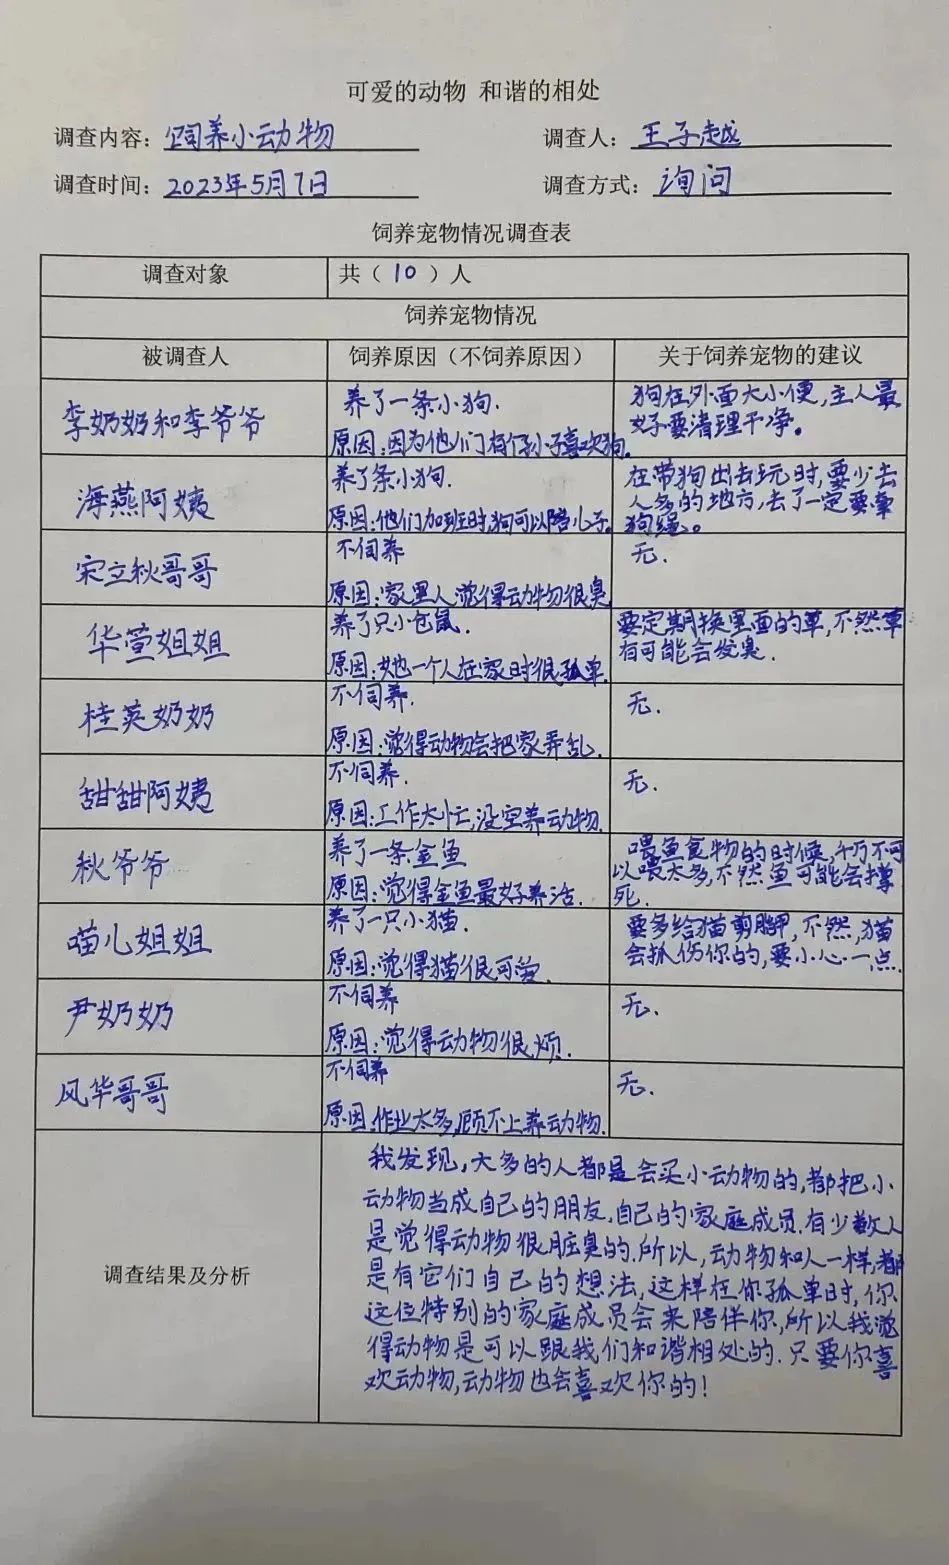 可爱的动物 和谐的相处
调查内容：饲养小动物 调查人：王子越
调查时间：2023年5月7日 调查方式：询问
饲养宠物情况调查表
调查对象 共（10）人
饲养宠物情况
被调查人 饲养原因（不饲养原因） 关于饲养宠物的建议
李奶奶和李爷爷
养了一条小狗.
原因：因为他们有个孙子喜欢狗.
狗在外面大小便，主人最
好要清理干净。
海燕阿姨
养了条小狗.
原因：他们加班时，狗可以陪儿子。
在带狗出去玩时，要少去
人多的地方，去了一定要牵
狗绳。
宋立秋哥哥
不饲养
原因：家里人觉得动物很臭
无.
华萱姐姐
养了只小仓鼠.
原因：她一个人在家时很孤单.
要定期换里面的草，不然草
有可能会发臭.
桂英奶奶
不饲养.
原因：觉得动物会把家弄乱.
无.
甜甜阿姨
不饲养.
原因：工作太忙，没空养动物.
无.
秋爷爷
养了一条金鱼
原因：觉得金鱼最好养活.
喂鱼食物的时候，千万不可
以喂太多，不然鱼可能会撑
死.
喵儿姐姐
养了一只小猫.
原因：觉得猫很可爱.
要多给猫剪指甲，不然，猫
会抓伤你的，要小心一点.
尹奶奶
不饲养
原因：觉得动物很烦.
无.
风华哥哥
不饲养
原因：作业太多，顾不上养动物.
无.
调查结果及分析
我发现，大多的人都是会买小动物的，都把小
动物当成自己的朋友，自己的家庭成员.有少数人
是觉得动物很脏臭的.所以，动物和人一样，都
是有它们自己的想法，这样在你孤单时，你
这位特别的家庭成员会来陪伴你，所以我觉
得动物是可以跟我们和谐相处的.只要你喜
欢动物，动物也会喜欢你的！